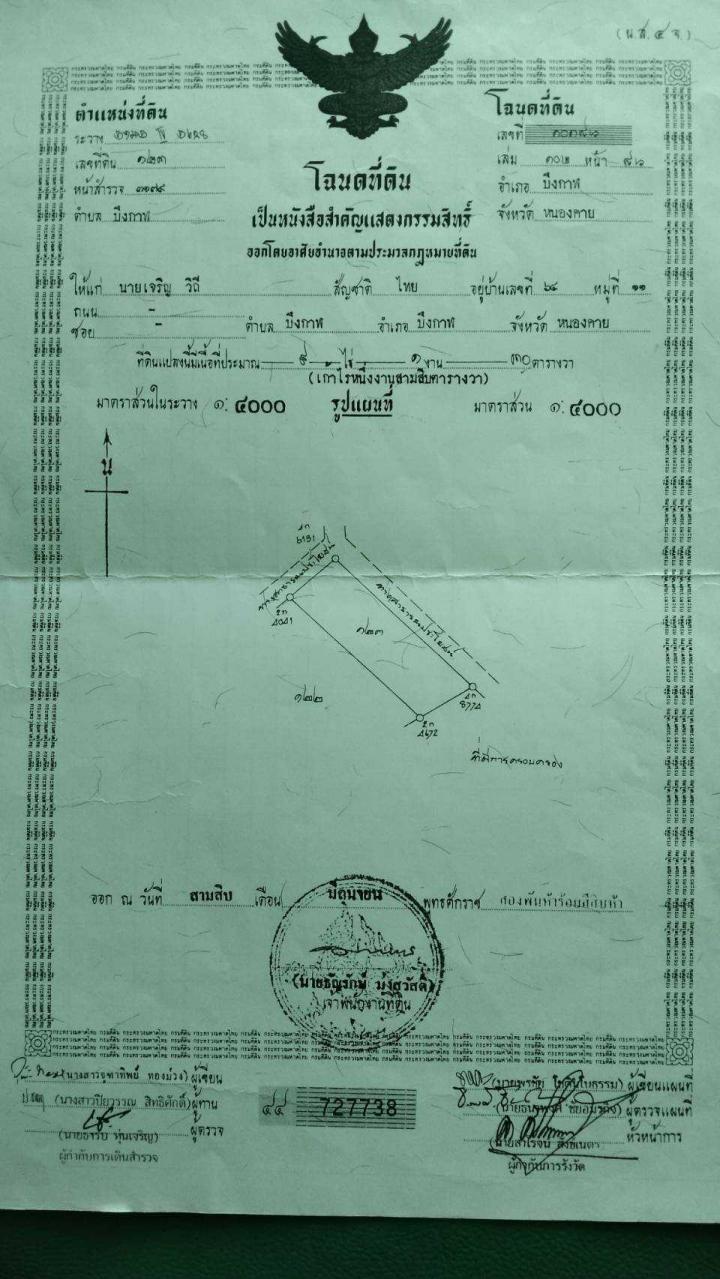 (น.ส. ๔ จ.)
ตำแหน่งที่ดิน
ระวาง
เลขที่ดิน ๑๒๓
หน้าสำรวจ ๓๑๗๙
ตำบล บึงกาฬ
โฉนดที่ดิน
เลขที่
เล่ม ๑๐๒ หน้า
อำเภอ บึงกาฬ
จังหวัด หนองคาย
โฉนดที่ดิน
เป็นหนังสือสำคัญแสดงกรรมสิทธิ์
ออกโดยอาศัยอำนาจตามประมวลกฎหมายที่ดิน
ให้แก่ นายเจริญ วิถี สัญชาติ ไทย อยู่บ้านเลขที่ ๖๔ หมู่ที่ ๑๑
ถนน -
ซอย - ตำบล บึงกาฬ อำเภอ บึงกาฬ จังหวัด หนองคาย
ที่ดินแปลงนี้มีเนื้อที่ประมาณ ๙ ไร่ ๑ งาน ๓๐ ตารางวา
(เก้าไร่หนึ่งงานสามสิบตารางวา)
มาตราส่วนในระวาง ๑: ๔๐๐๐ รูปแผนที่ มาตราส่วน ๑: ๔๐๐๐
น
ทางสาธารณประโยชน์
ทางสาธารณประโยชน์
๑๒๓
๑๒๒
ที่มีการครอบครอง
ออก ณ วันที่ สามสิบ เดือน มิถุนายน พุทธศักราช สองพันห้าร้อยสี่สิบห้า
(นายธัญรักษ์ มุ่งสวัสดิ์)
เจ้าพนักงานที่ดิน
(นางสาวจุฑาทิพย์ ทองม่วง) ผู้เขียน
(นางสาวปิยวรรณ สิทธิศักดิ์) ผู้ทาน
ผู้ตรวจ
ผู้กำกับการเดินสำรวจ
๔๔ 727738
ผู้เขียนแผนที่
ผู้ตรวจแผนที่
หัวหน้าการ
ผู้กำกับการรังวัด